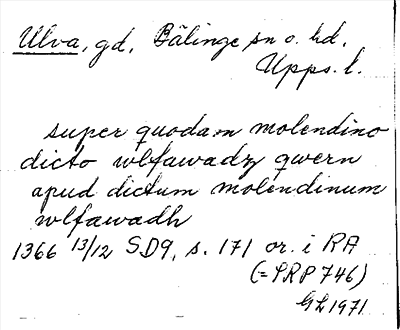 Ulva, gd, Bälinge sn o. hd,
Upps. l.
super quodam molendino
dicto wlfawadz qwern
apud dictum molendinum
wlfawadh
1366 13/12 SD9, s. 171 or. i RA
(= SRP 746)
GL 1971